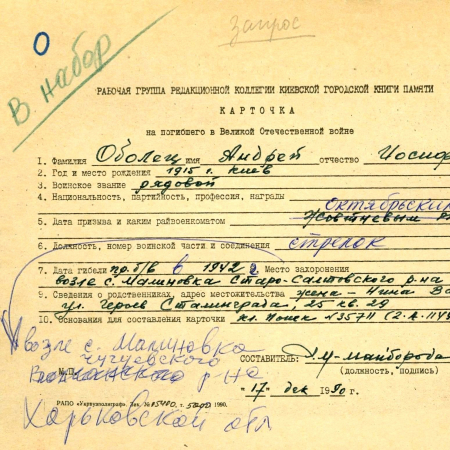 0
В набор
Запрос
РАБОЧАЯ ГРУППА РЕДАКЦИОННОЙ КОЛЛЕГИИ КИЕВСКОЙ ГОРОДСКОЙ КНИГИ ПАМЯТИ
КАРТОЧКА
на погибшего в Великой Отечественной войне
1. Фамилия Оболец имя Андрей отчество Иосиф
2. Год и место рождения 1915 г. Киев
3. Воинское звание рядовой
4. Национальность, партийность, профессия, награды
Октябрьским
5. Дата призыва и каким райвоенкоматом Жовтневым
6. Должность, номер воинской части и соединения стрелок
7. Дата гибели пр. б/в в 1942 г. Место захоронения
возле с. Малиновка Старо-Салтовского р-на
9. Сведения о родственниках, адрес местожительства жена - Нина
ул. Героев Сталинграда, 25 кв. 29
10. Основания для составления карточки кл. Поиск № 35711 (2-А-1149
возле с. Малиновка
чугуевского
р-на
М.П.
Харьковской обл
СОСТАВИТЕЛЬ: Майборода
(должность, подпись)
"17" дек 1990 г.
РАПО «Укрвузполиграф». Зак. 1990.